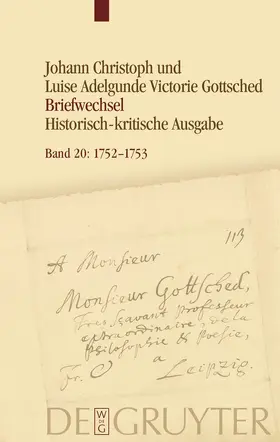 Johann Christoph und
Luise Adelgunde Victorie Gottsched
Briefwechsel
Historisch-kritische Ausgabe
Band 20: 1752–1753
113
A Monsieur
Monsieur Gottsched,
Tres Savant Professeur
extraordinaire, de la
Philosophie & Poesie,
Fr. a
Leipzig.
W
DE
G
DE GRUYTER